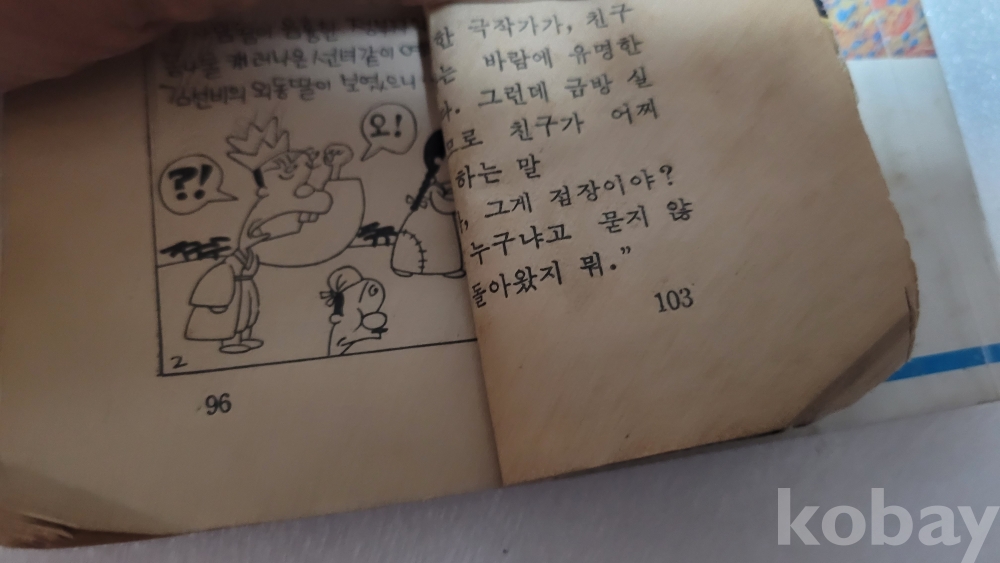 재 러나온 선녀같이
김선비의 외동딸이 보였으니
?!
오!
2
96
한 극작가가, 친구
는 바람에 유명한
다. 그런데 금방 실
므로 친구가 어찌
하는 말
그게 점장이야?
누구냐고 묻지 않
돌아왔지 뭐.”
103
kobay